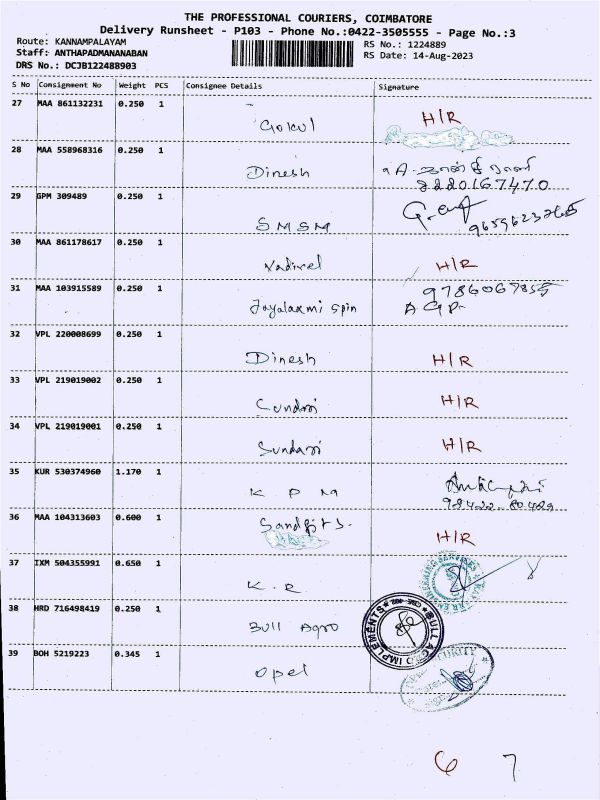 THE PROFESSIONAL COURIERS, COIMBATORE
Delivery Runsheet - P103 - Phone No.:0422-3505555 - Page No.:3
Route: KANNAMPALAYAM
RS No.: 1224889
Staff: ANTHAPADMANANABAN
RS Date: 14-Aug-2023
DRS No.: DCJB122488903
S No Consignment No Weight PCS Consignee Details Signature
27 MAA 861132231 0.250 1
Gokul H/R
28 MAA 558968316 0.250 1
Dinesh
8220167470
29 GPM 309489 0.250 1
SMSM
30 MAA 861178617 0.250 1
Vadivel H/R
31 MAA 103915589 0.250 1 9786067855
Jayalaxmi Spin
32 VPL 220008699 0.250 1
Dinesh H/R
33 VPL 219019002 0.250 1
Sundari H/R
34 VPL 219019001 0.250 1
Sundari H/R
35 KUR 530374960 1.170 1
K P M
36 MAA 104313603 0.600 1
H/R
37 IXM 504355991 0.650 1
K.R
38 HRD 716498419 0.250 1
Bull Agro
BULL AGRO IMPLEMENTS
39 BOH 5219223 0.345 1
Opel
6 7